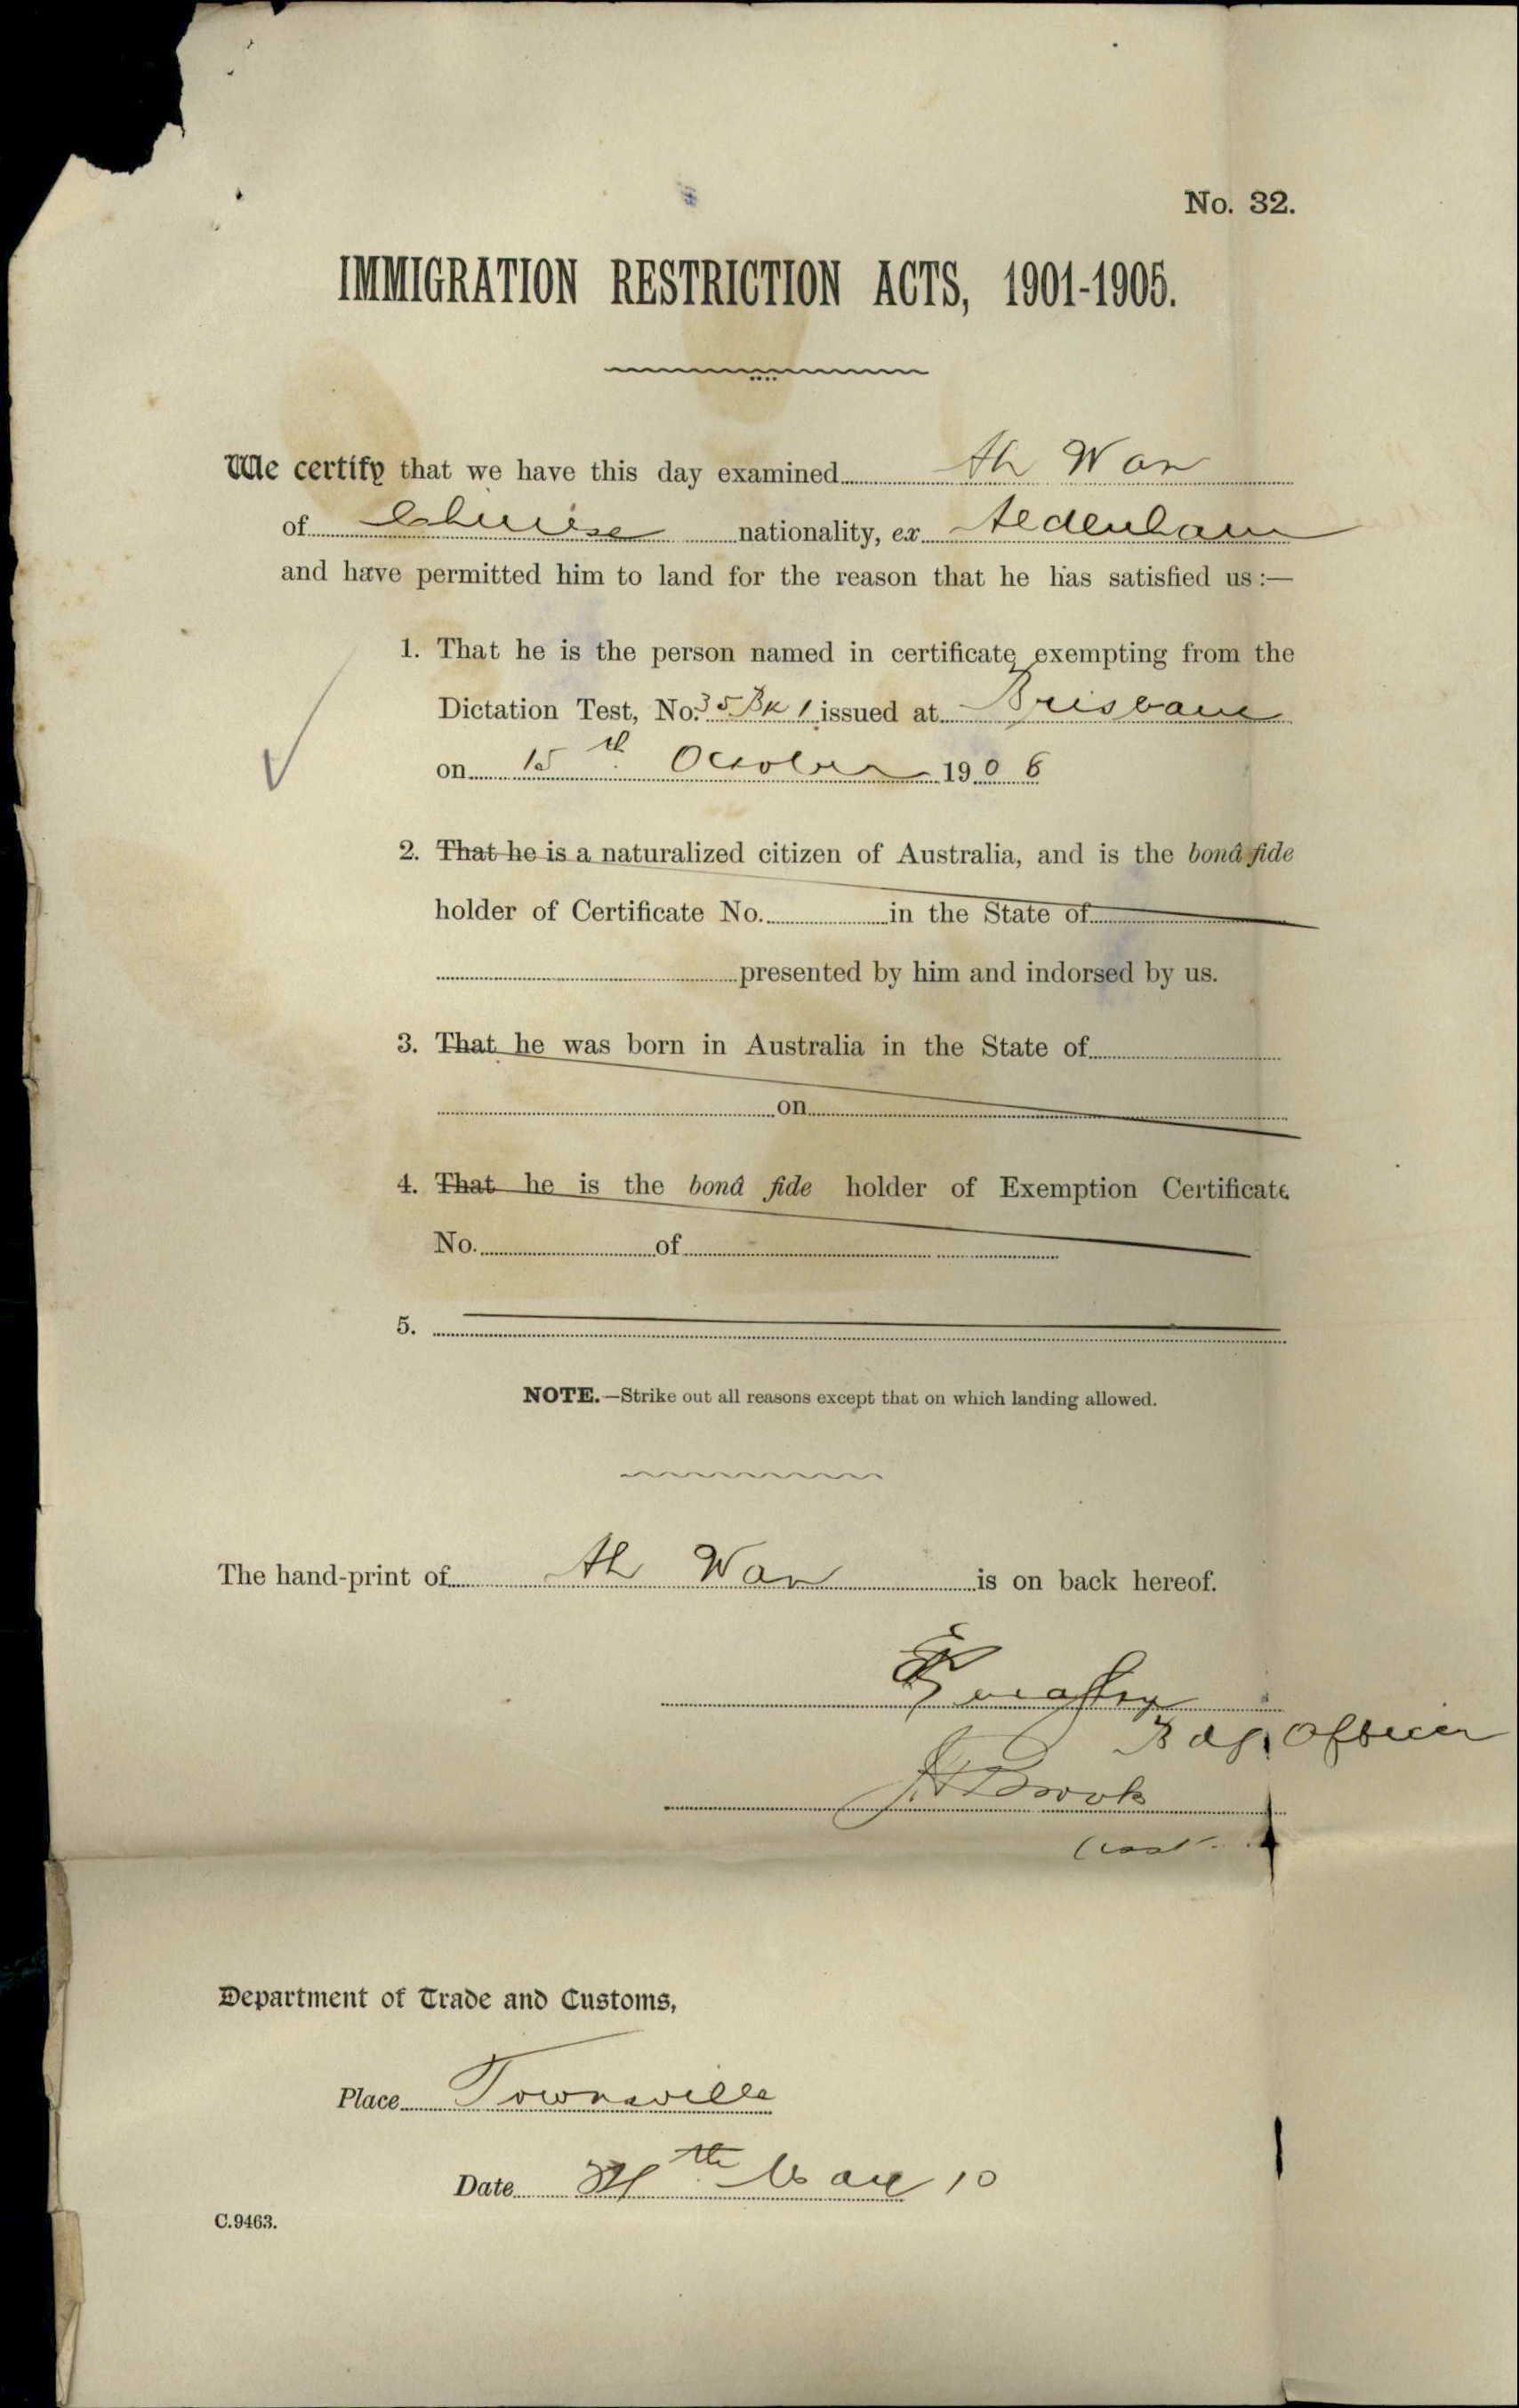 No. 32.
IMMIGRATION RESTRICTION ACTS, 1901-1905.
We certify that we have this day examined Ah Wan
of Chinese nationality, ex Aldenham
and have permitted him to land for the reason that he has satisfied us :—
1. That he is the person named in certificate exempting from the
Dictation Test, No. 35 Bk 1 issued at Brisbane
on 15th October 1906
2. That he is a naturalized citizen of Australia, and is the bonâ fide
holder of Certificate No. in the State of
presented by him and indorsed by us.
3. That he was born in Australia in the State of
on
4. That he is the bonâ fide holder of Exemption Certificate
No. of
5.
NOTE.—Strike out all reasons except that on which landing allowed.
The hand-print of Ah Wan is on back hereof.
Bdg. Officer
Brook
Department of Trade and Customs,
Place Townsville
Date th 10
C.9463.